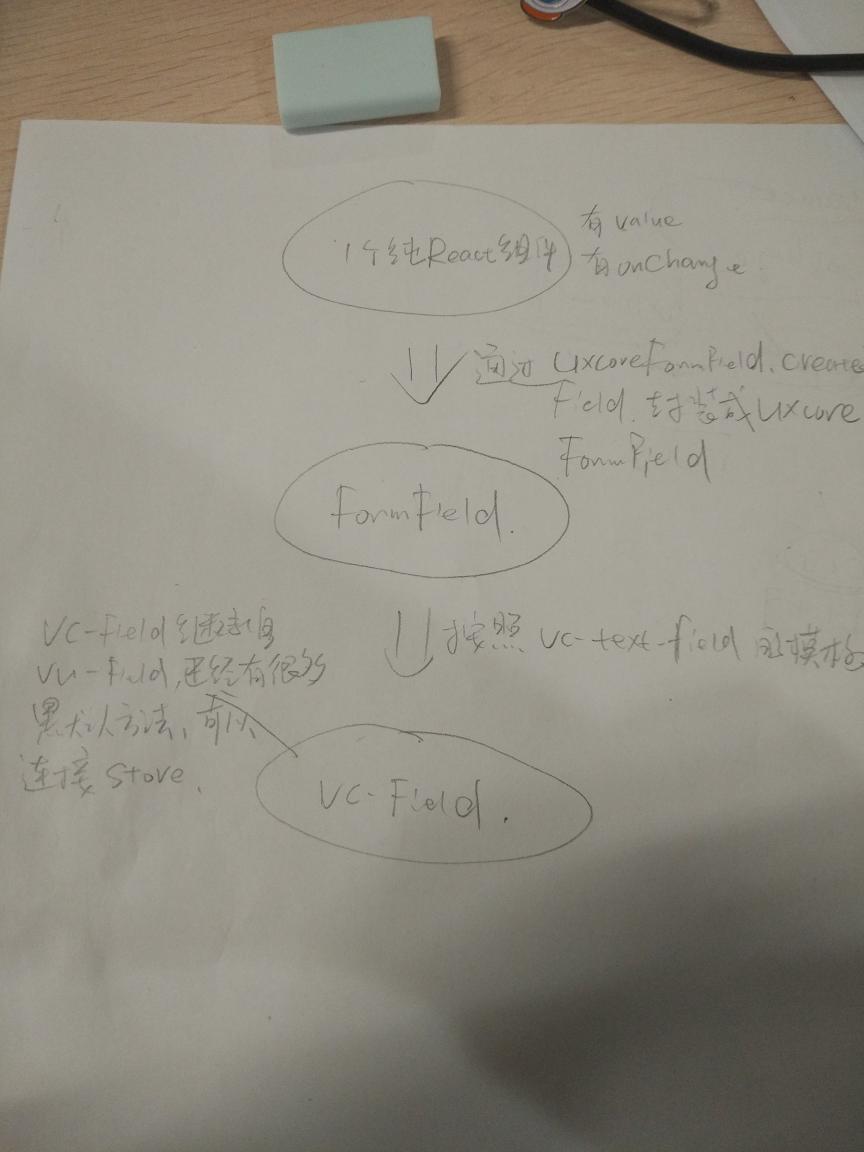 1个纯React组件
有value
有onChange
通过 UxcoreFormField.create
Field. 封装成Uxcore
FormField
FormField.
按照 VC-text-field 的模板
VC-Field继承自
VU-Field,已经有很多
默认方法,可以
连接 Store.
VC-Field.